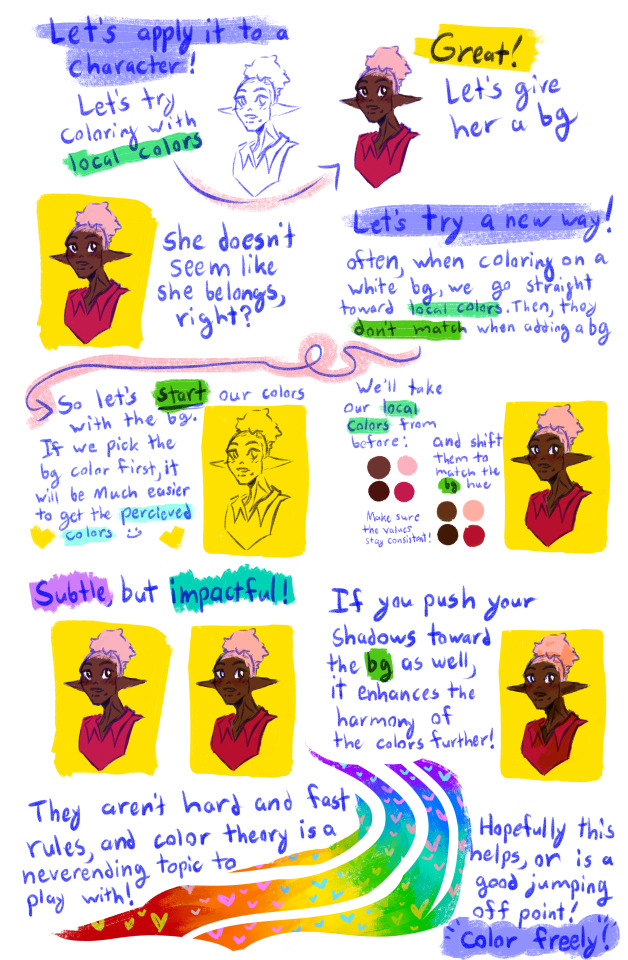 Let's apply it to a
character!
Let's try
coloring with
local colors
Great!
Let's give
her a bg
She doesn't
seem like
she belongs,
right?
Let's try a new way!
often, when coloring on a
white bg, we go straight
toward local colors. Then, they
don't match when adding a bg
So let's start our colors
with the bg.
If we pick the
bg color first, it
will be much easier
to get the percieved
colors :)
We'll take
our local
colors from
before:
and shift
them to
match the
bg hue
Make sure
the values
stay consistent!
Subtle, but impactful!
If you push your
shadows toward
the bg as well,
it enhances the
harmony of
the colors further!
They aren't hard and fast
rules, and color theory is a
neverending topic to
play with!
Hopefully this
helps, or is a
good jumping
off point!
Color freely!